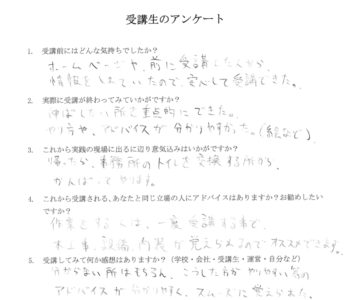 受講生のアンケート
1. 受講前にはどんな気持ちでしたか？
ホームページや、前に受講した人から、
情報をしていたので、安心して受講できた。
2. 実際に受講が終わってみていかがですか？
伸ばしたい所を重点的にできた。
やり方や、アドバイスが分かりやすかった。(絵など)
3. これから実践の現場に出るに辺り意気込みはいかがですか？
帰ったら、事務所のトイレを交換する所から、
がんばってやります。
4. これから受講される、あなたと同じ立場の人にアドバイスはありますか？お勧めしたい
ですか？
作業をする人は、一度受講する事で、
木工事、設備、内装が覚えられるのでオススメできます。
5. 受講してみて何か感想はありますか？（学校・会社・受講生・運営・自分など）
分からない所はもちろん、こうした方がやりやすい等の
アドバイスが分かりやすく、スムーズに覚えられた。